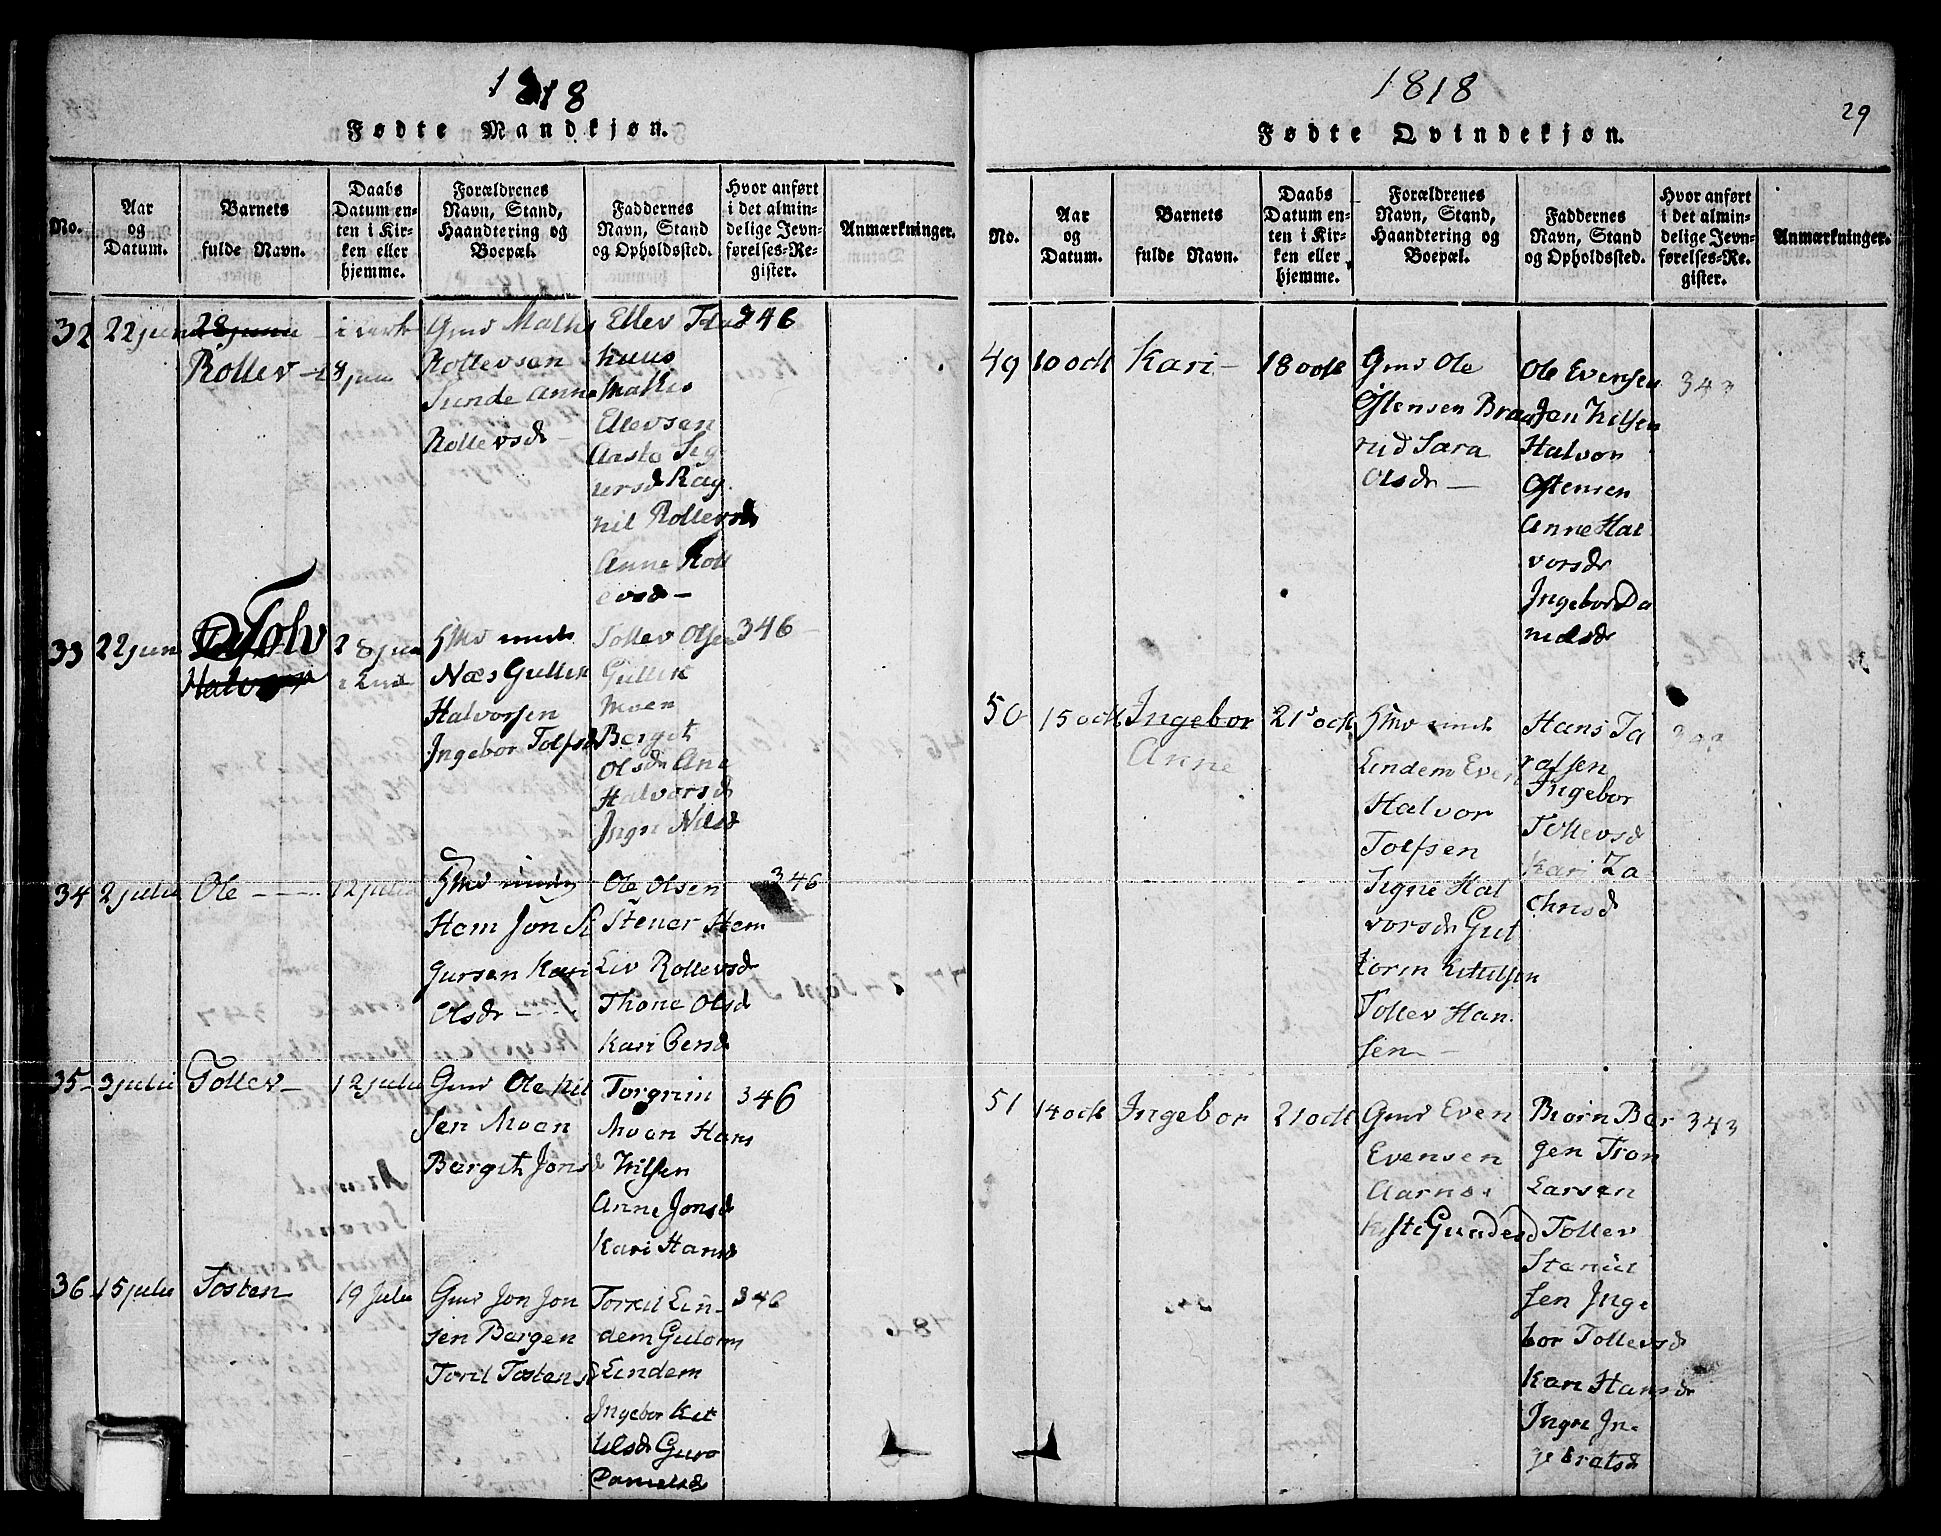 1818
Fødte Mandkjøn.
No.
Aar
og
Datum.
Barnets
fulde Navn.
Daabs
Datum en-
ten i Kir-
ken eller
hjemme.
Forældrenes
Navn, Stand,
Haandtering og
Boepæl.
Faddernes
Navn, Stand
og Opholdssted.
Hvor anført
i det almin-
delige Jevn-
førelses-Re-
gister.
Anmærkninger.
32
22 juni
28 juni
Rollev
i kirk
28 juni
Gmd
Rollevsen
Sunde Anne
Rollevsdr
Ellev
Ellevsen
Rag
nil Rollevsdr
Anne Roll
evsd
346
33
22 juni
Tolv
Halvor
28 juni
Næs Gullik
Halvorsen
Ingebor Tolfsd
Tollev Olsen
Gullik
Moen
Berget
Olsdr Ane
Halvorsd
Ingri Nilsd
346
34
2 julii
Ole
12 julii
Hem Jon Si
gursen Kari
Olsdr
Ole Olsen
Stener Hem
Liv Rollevsd
Thone Olsd
Kari
346
35
3 julii
Tollev
12 julii
Gmd Ole Nil
sen Moen
Berget Jonsd
Torgrim
Moen Hans
Nilsen
Anne Jonsd
Kari Hansd
346
36
15 julii
Tosten
19 julii
Gmd Jon Jon
sen Bergen
Toril Tostens
Torkil Lin
dem Gulorm
Lindem
Ingebor Ket
ilsdr Guro
Danielsdr
346
1818
29
Fødte Qvindekjøn.
No.
Aar
og
Datum.
Barnets
fulde Navn.
Daabs
Datum en-
ten i Kir-
ken eller
hjemme.
Forældrenes
Navn, Stand,
Haandtering og
Boepæl.
Faddernes
Navn, Stand
og Opholdssted.
Hvor anført
i det almin-
delige Jevn-
førelses-Re-
gister.
Anmærkninger.
49
10 octb
Kari
18 octb
Gmd Ole
Østensen
Sara
Olsdr
Ole Evensen
Jon Nilsen
Halvor
Østensen
Anne Hal
vorsdr
Ingebor Da
nielsdr
343
50
15 octb
Ingebor
Anne
21 octb
Lindem Even
Halvor
Tolfsen
Signe Hal
vorsdr Gul
lorm Kittilsen
Tollev Han
sen
Hans Ta
ralsen
Ingebor
Tollevsd
Kari Za
chrisd
51
14 octb
Ingebor
21 octb
Gmd Even
Evensen
Aarnes
Biørn Ber
gen Tron
Larsen
Tollev
sen Inge
bor Tollevsd
Kari Hansdr
Ingri In
gebratsd
343